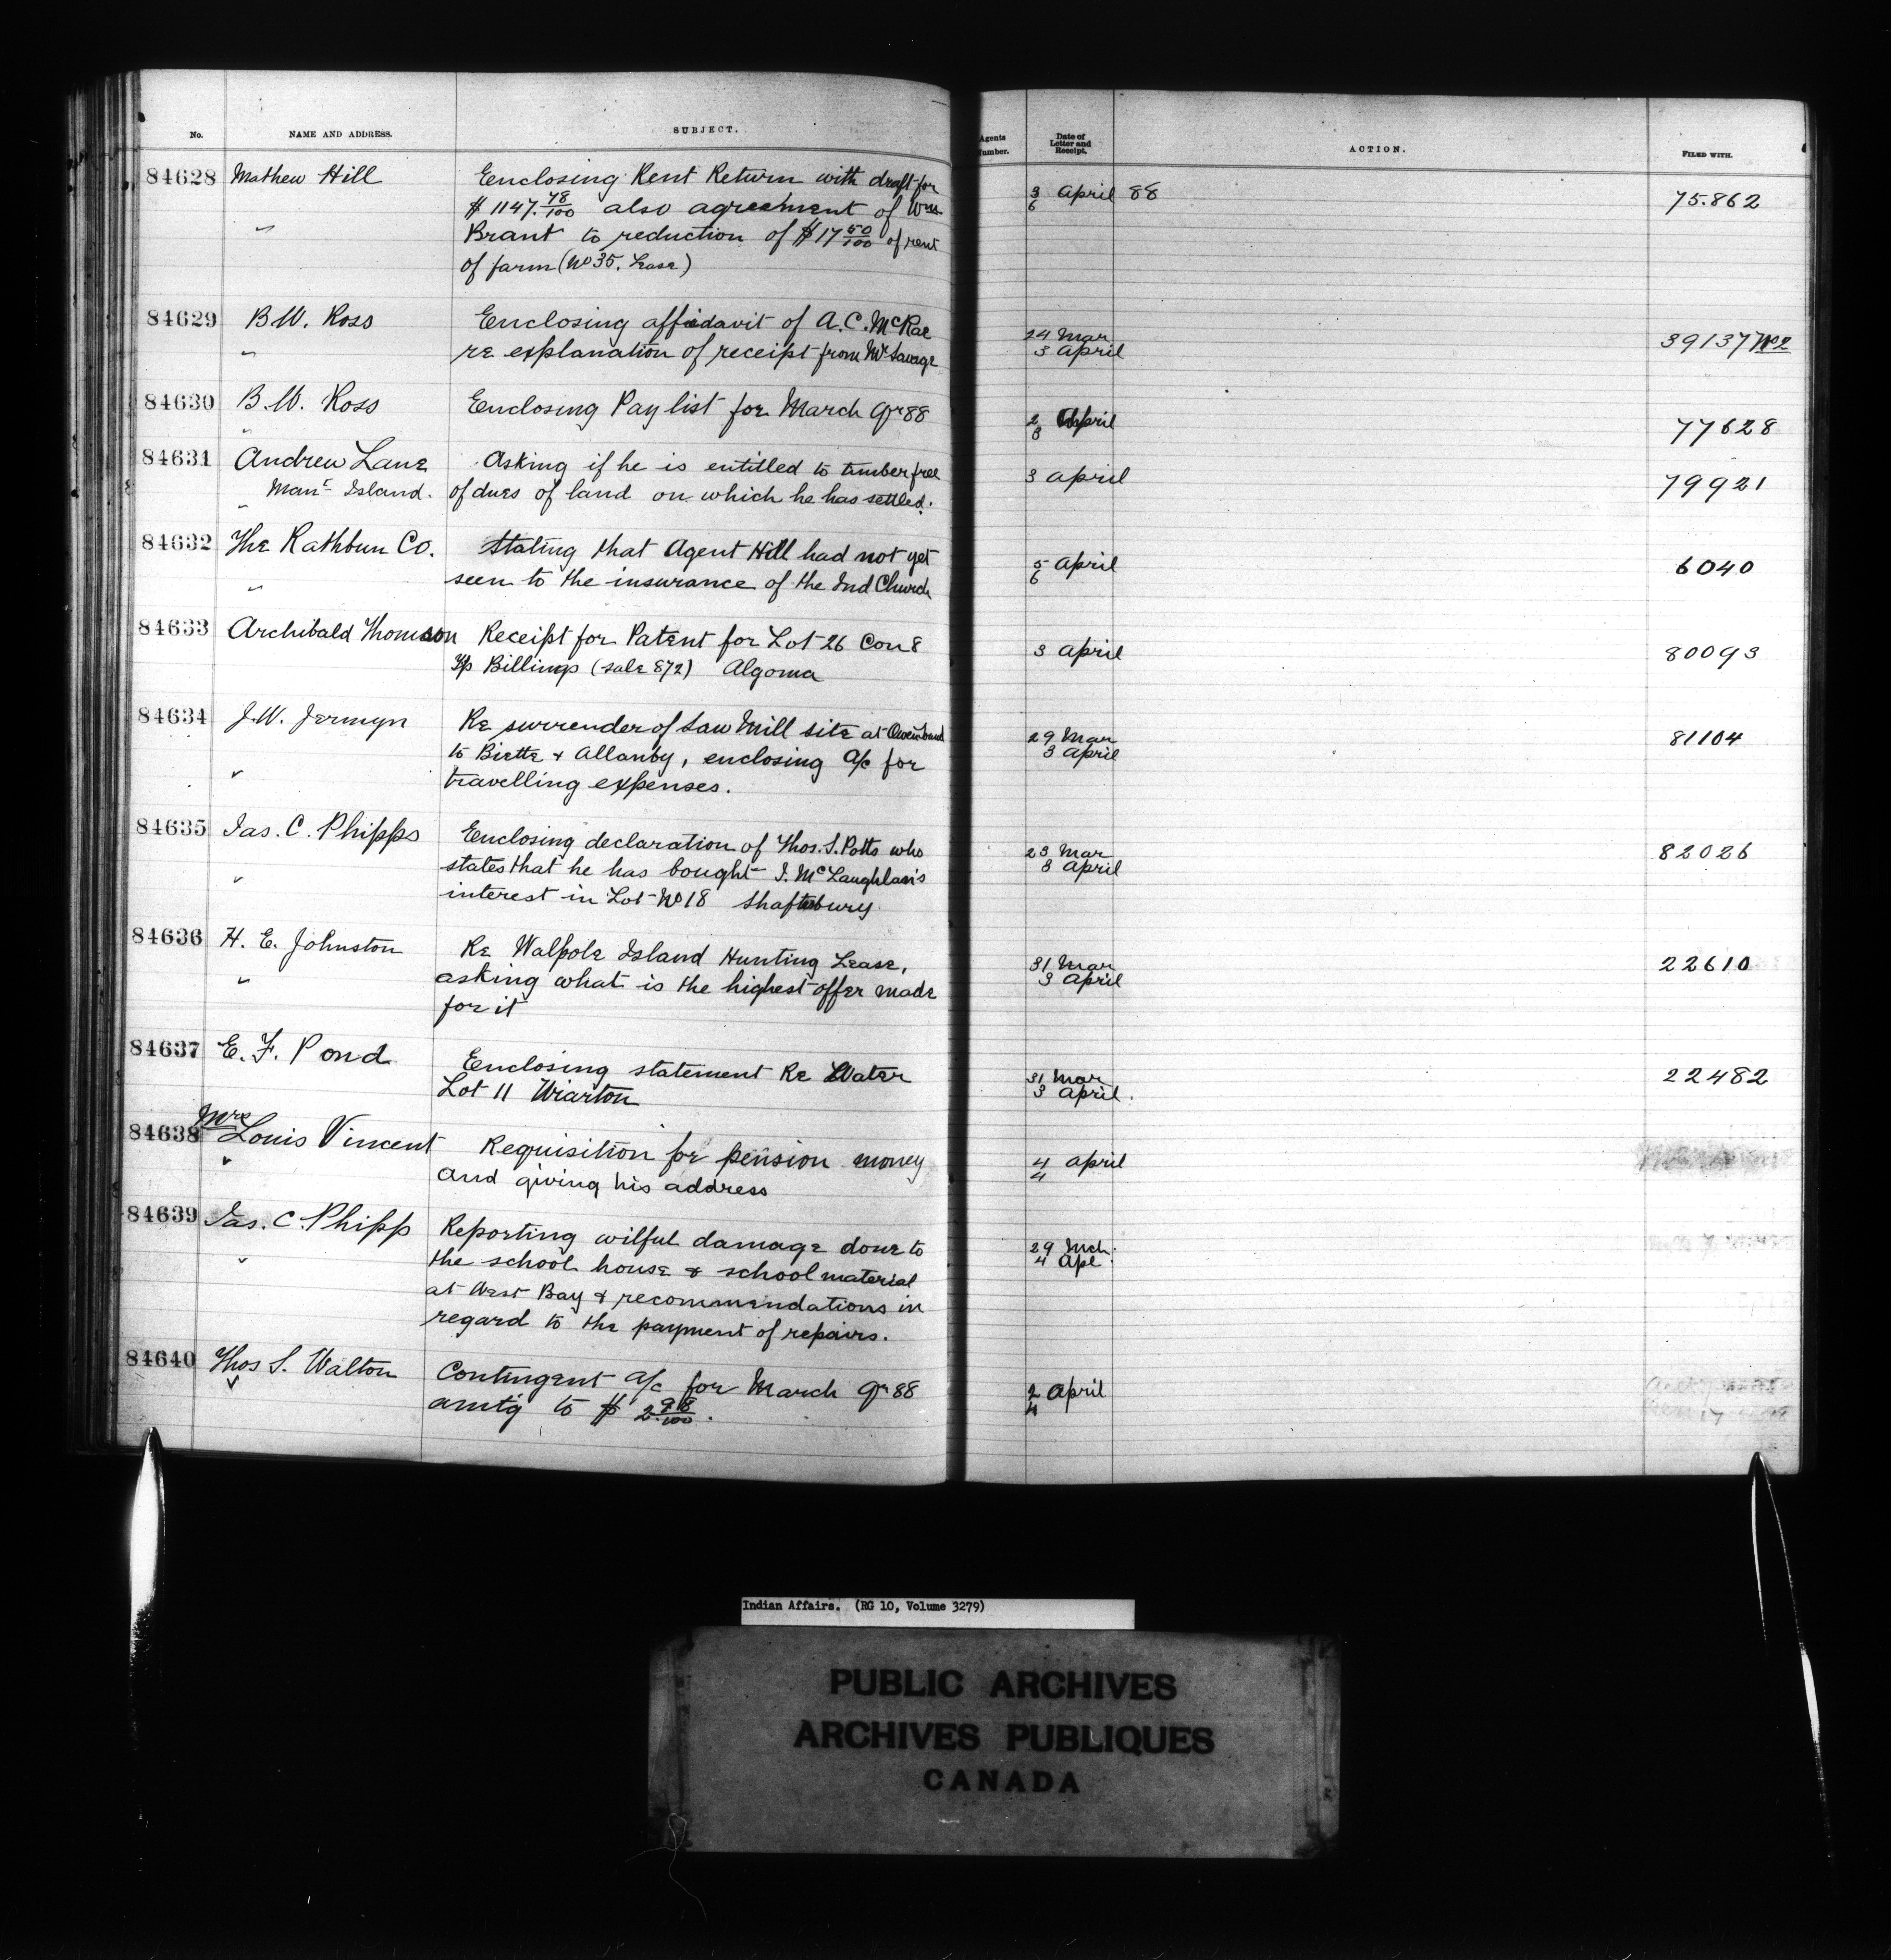 No. NAME AND ADDRESS. SUBJECT. Agents Number. Date of Letter and Receipt. ACTION. FILED WITH.
84628 Mathew Hill Enclosing Rent Return with draft for 3 April 88 75.862
$1147.78/100 also agreement of Wm. 6
" Brant to reduction of $17 50/100 of rent
of farm (No 35. Lease)
84629 B.W. Ross Enclosing affidavit of A.C. McRae 24 Mar 39137 No 2
" re explanation of receipt from Mr Savage 3 April
84630 B.W. Ross Enclosing Pay list for March Qr 88 2 April 77628
" 3
84631 Andrew Lane Asking if he is entitled to timber free 3 April 79921
Mann Island. of dues of land on which he has settled.
"
84632 The Rathbun Co. Stating that Agent Hill had not yet 5 April 6040
" seen to the insurance of the Ind Church 6
84633 Archibald Thomson Receipt for Patent for Lot 26 Con 8 3 April 80093
Tp Billings (sale 872) Algoma
84634 J.W. Jermyn Re surrender of Saw Mill site at Owen Sound 29 Mar 81104
to Biette & Allanby, enclosing a/c for 3 April
" travelling expenses.
84635 Jas. C. Phipps Enclosing declaration of Thos. S. Potts who 23 Mar 82026
states that he has bought J. McLaughlan's 3 April
" interest in Lot No 18 Shaftsbury
84636 H. E. Johnston Re Walpole Island Hunting Lease, 31 Mar 22610
" asking what is the highest offer made 3 April
for it
84637 E. F. Pond Enclosing statement Re Water 31 Mar 22482
Lot 11 Wiarton 3 April.
Mrs
84638 Louis Vincent Requisition for pension money 4 April
" and giving his address 4
84639 Jas. C. Phipp Reporting wilful damage done to 29 Mch.
" the school house & school material 4 Apl.
at West Bay & recommendations in
regard to the payment of repairs.
84640 Thos S. Walton Contingent a/c for March Qr 88 2 April
amtg to $ 2.98/100. 4
Indian Affairs. (RG 10, Volume 3279)
PUBLIC ARCHIVES
ARCHIVES PUBLIQUES
CANADA